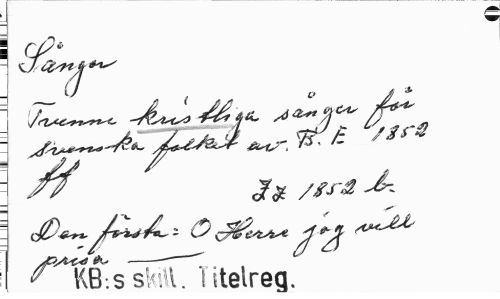 Sånger
Tvenne kristliga sånger för
svenska folket av. B. E 1852
ff
ZZ 1852 b.
Den första: O Herre jag vill
prisa ———
KB:s skill. Titelreg.